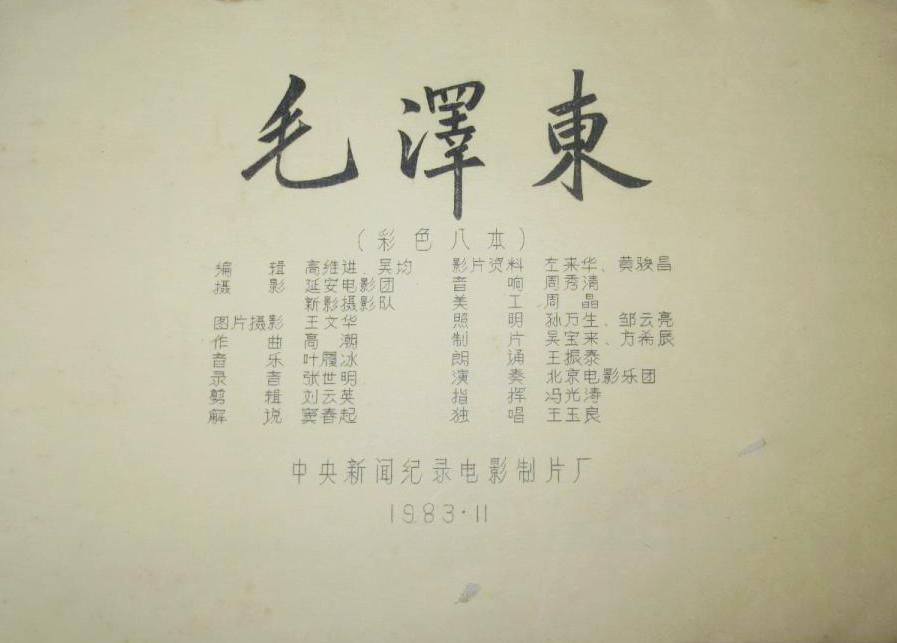 毛澤東
(彩色八本)
编辑 高维进、吴均
摄影 延安电影团
新影摄影队
图片摄影 王文华
作曲 高潮
音乐 叶履冰
录音 张世明
剪辑 刘云英
解说 窦春起
影片资料 左来华、黄骏昌
音响 周秀清
美工 周晶
照明 孙万生、邹云亮
制片 吴宝来、方希辰
朗诵 王振泰
演奏 北京电影乐团
指挥 冯光涛
独唱 王玉良
中央新闻纪录电影制片厂
1983·11